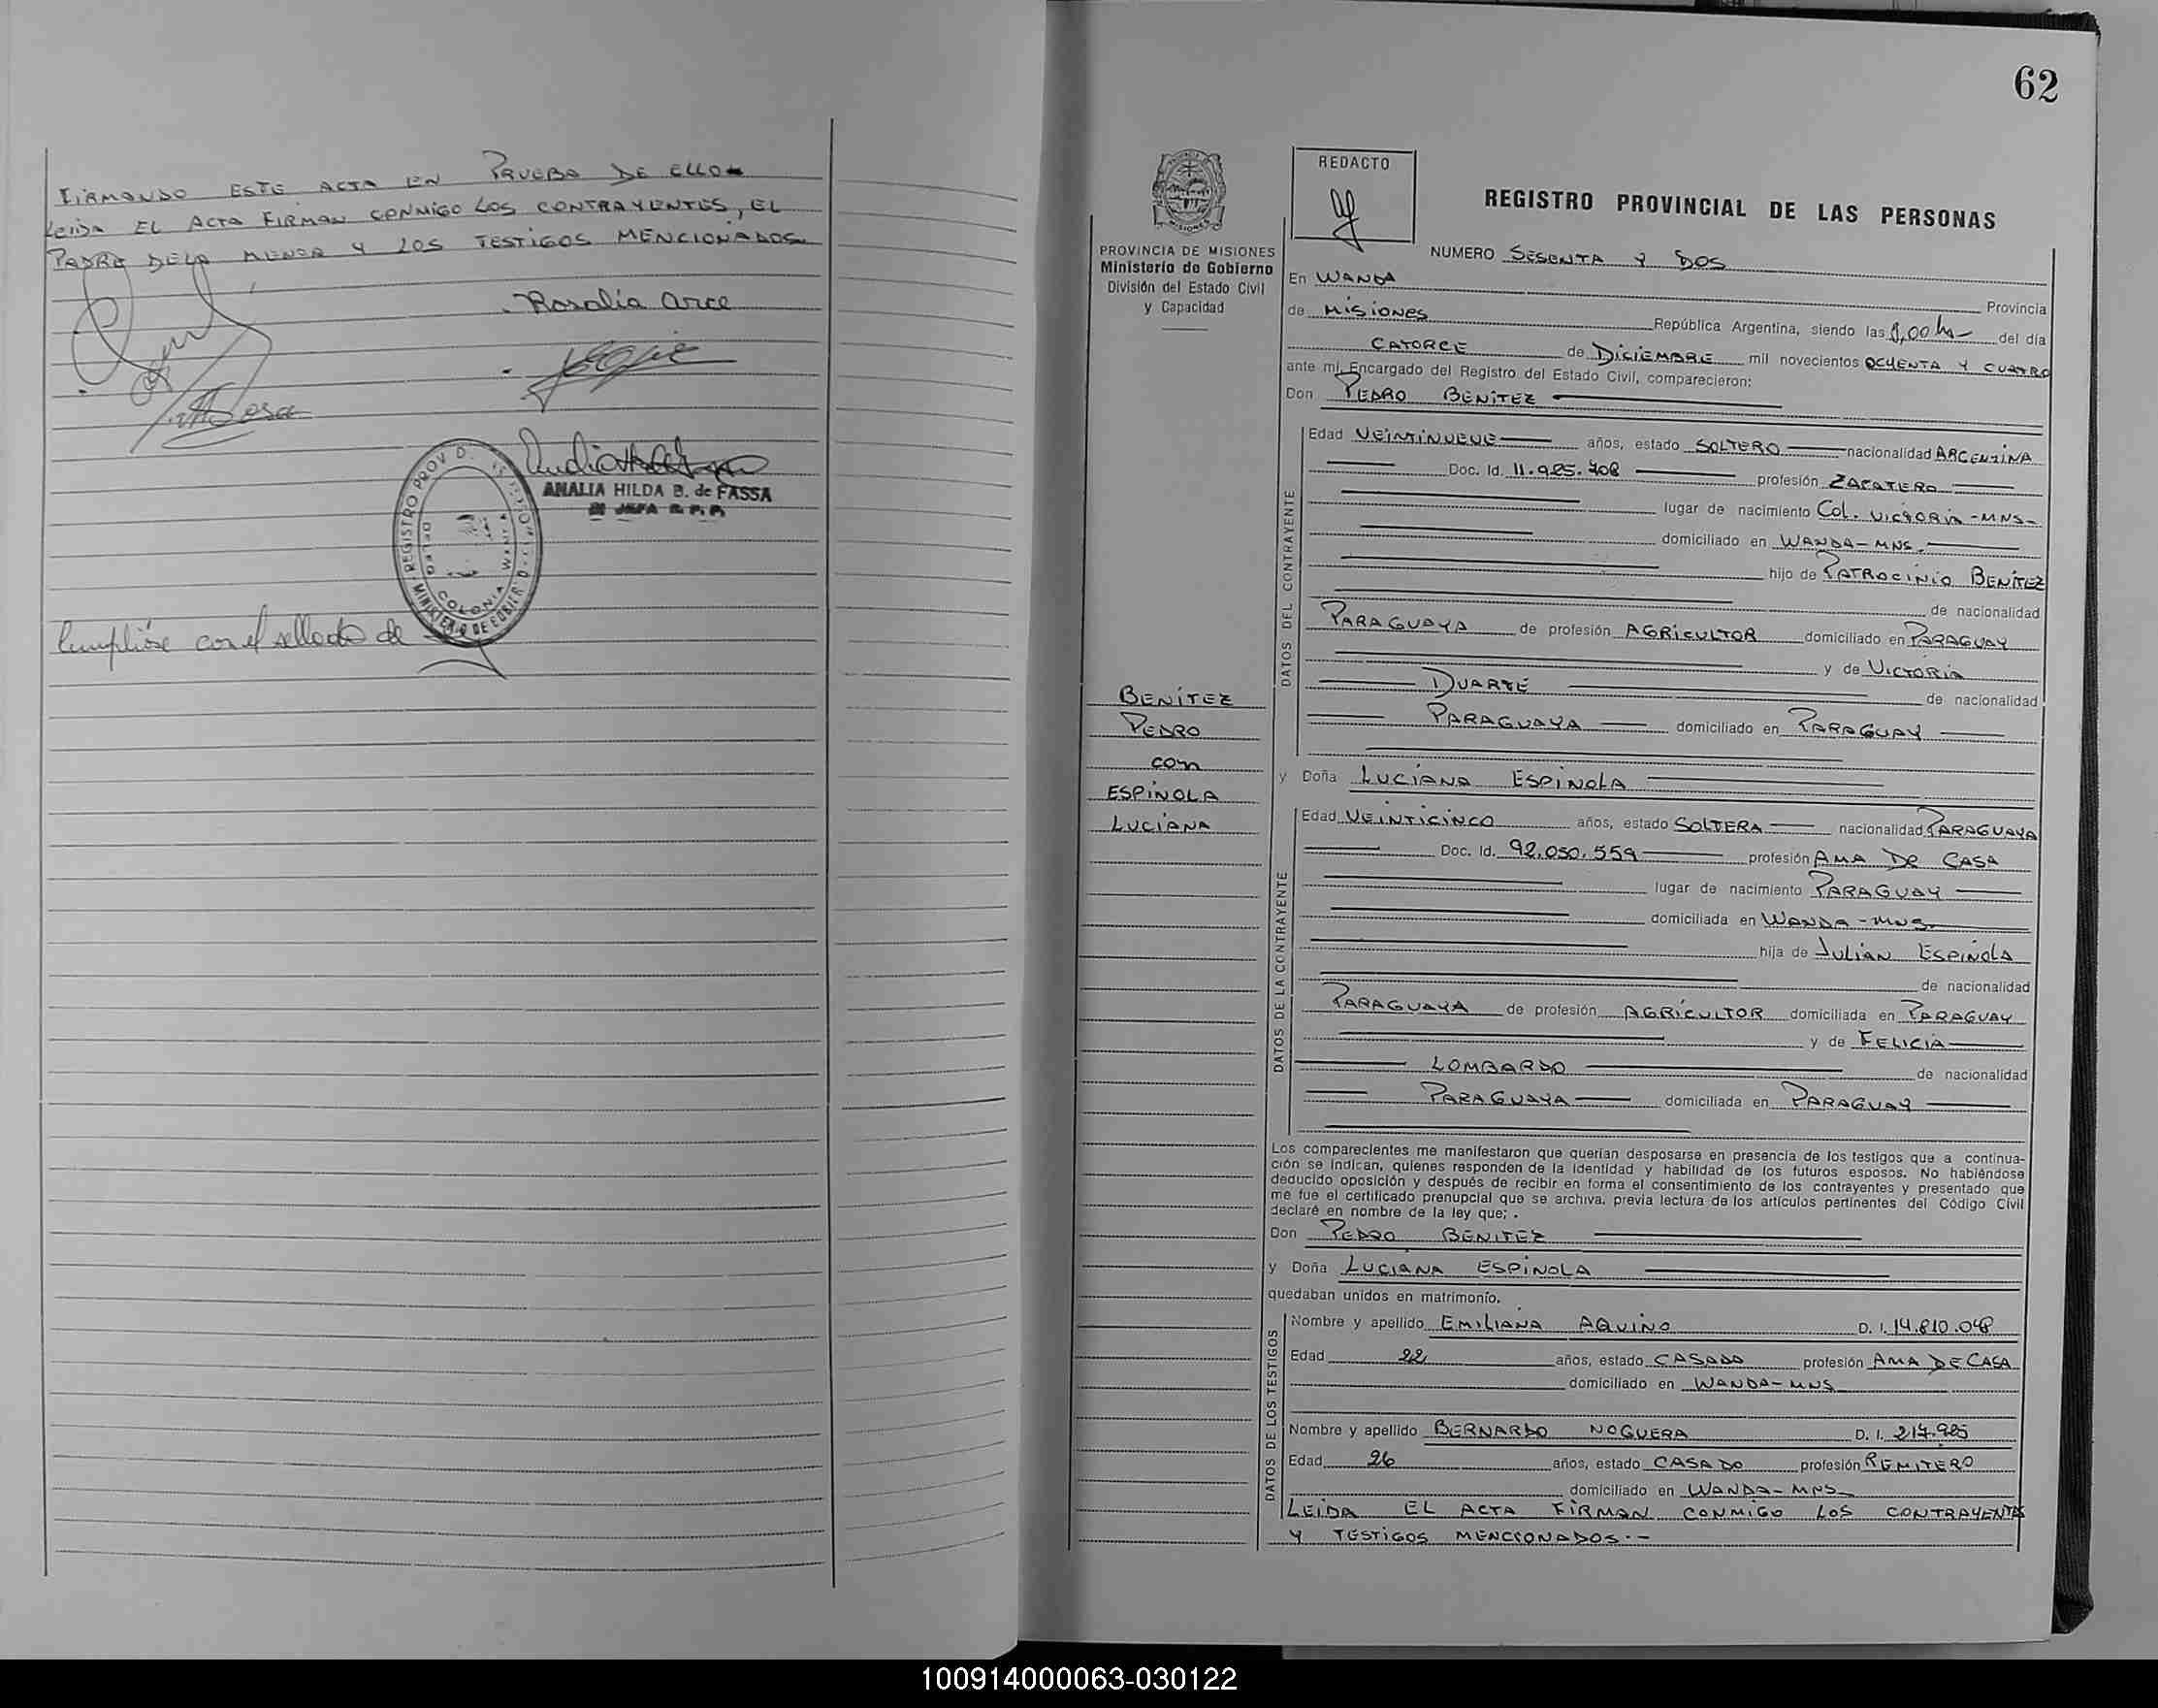 FIRMANDO ESTE ACTA EN PRUEBA DE ELLO-
LEIDA EL ACTA FIRMAN CONMIGO LOS CONTRAYENTES, EL
PADRE DE LA MENOR Y LOS TESTIGOS MENCIONADOS-
Rosalia Arce
ANALIA HILDA B. de FASSA
JEFA R. P. P.
Cumplióse con el sellado de
62
REDACTO
REGISTRO PROVINCIAL DE LAS PERSONAS
PROVINCIA DE MISIONES
Ministerio de Gobierno
División del Estado Civil
y Capacidad
BENÍTEZ
PEDRO
con
ESPINOLA
LUCIANA
NUMERO SESENTA Y DOS
En WANDA Provincia
de MISIONES República Argentina, siendo las 9,00 hs del día
CATORCE de DICIEMBRE mil novecientos OCHENTA Y CUATRO
ante mí, Encargado del Registro del Estado Civil, comparecieron:
Don PEDRO BENITEZ
DATOS DEL CONTRAYENTE
Edad VEINTINUEVE años, estado SOLTERO nacionalidad ARGENTINA
Doc. Id. 11.925.708 profesión ZAPATERO
lugar de nacimiento COL. VICTORIA - MNS-
domiciliado en WANDA - MNS.
hijo de PATROCINIO BENITEZ
de nacionalidad
PARAGUAYA de profesión AGRICULTOR domiciliado en PARAGUAY
y de VICTORIA
DUARTE de nacionalidad
PARAGUAYA domiciliado en PARAGUAY
y Doña LUCIANA ESPINOLA
DATOS DE LA CONTRAYENTE
Edad VEINTICINCO años, estado SOLTERA nacionalidad PARAGUAYA
Doc. Id. 92.050.559 profesión AMA DE CASA
lugar de nacimiento PARAGUAY
domiciliada en WANDA - MNS
hija de JULIAN ESPINOLA
de nacionalidad
PARAGUAYA de profesión AGRICULTOR domiciliada en PARAGUAY
y de FELICIA
LOMBARDO de nacionalidad
PARAGUAYA domiciliada en PARAGUAY
Los comparecientes me manifestaron que querían desposarse en presencia de los testigos que a continua-
ción se indican, quienes responden de la identidad y habilidad de los futuros esposos. No habiéndose
deducido oposición y después de recibir en forma el consentimiento de los contrayentes y presentado que
me fue el certificado prenupcial que se archiva, previa lectura de los artículos pertinentes del Código Civil
declaré en nombre de la ley que; .
Don PEDRO BENITEZ
y Doña LUCIANA ESPINOLA
quedaban unidos en matrimonio.
DATOS DE LOS TESTIGOS
Nombre y apellido EMILIANA AQUINO D. I. 14.810.048
Edad 22 años, estado CASADO profesión AMA DE CASA
domiciliado en WANDA - MNS
Nombre y apellido BERNARDO NOGUERA D. I. 217.925
Edad 26 años, estado CASADO profesión REMITERO
domiciliado en WANDA - MNS
LEIDA EL ACTA FIRMAN CONMIGO LOS CONTRAYENTES
Y TESTIGOS MENCIONADOS.-
100914000063-030122